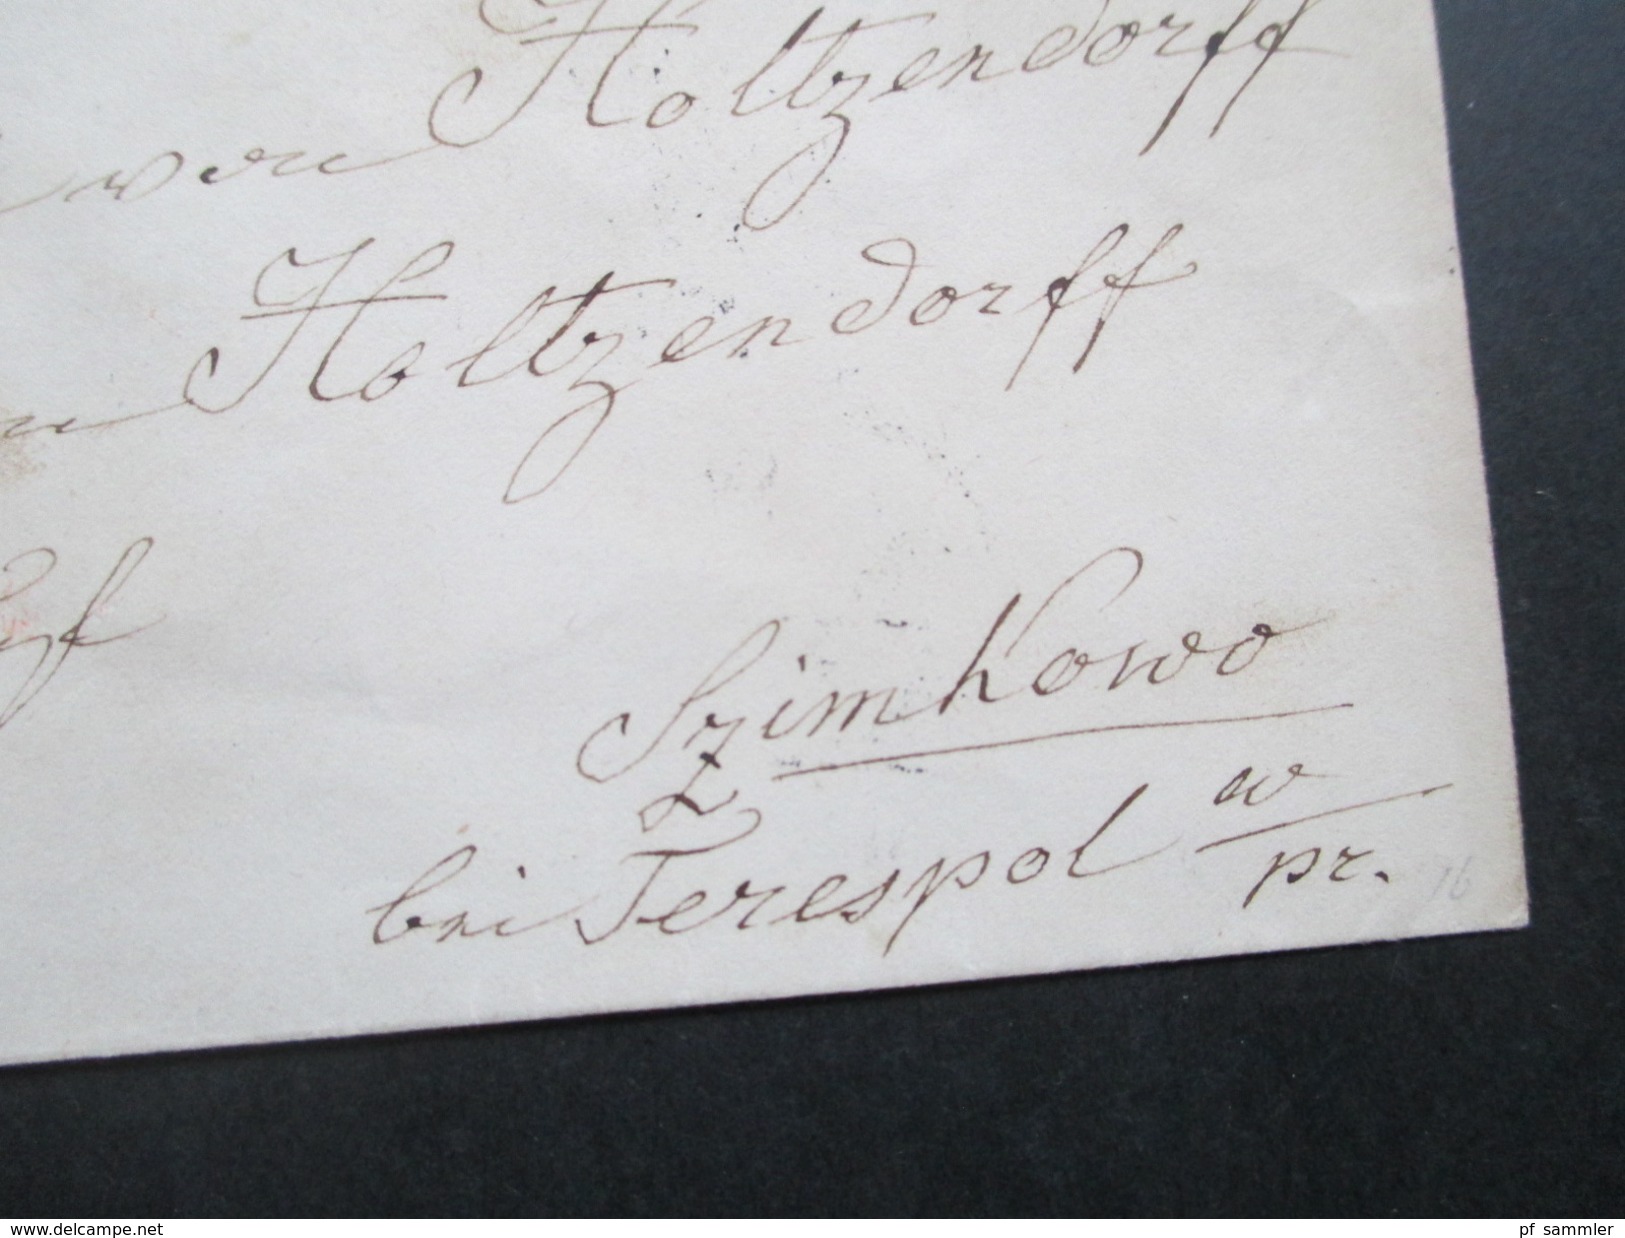 von Holtzendorff
Holtzendorff
Szimkowo
bei Terespol w/pr.
16
www.delcampe.net
pf sammler